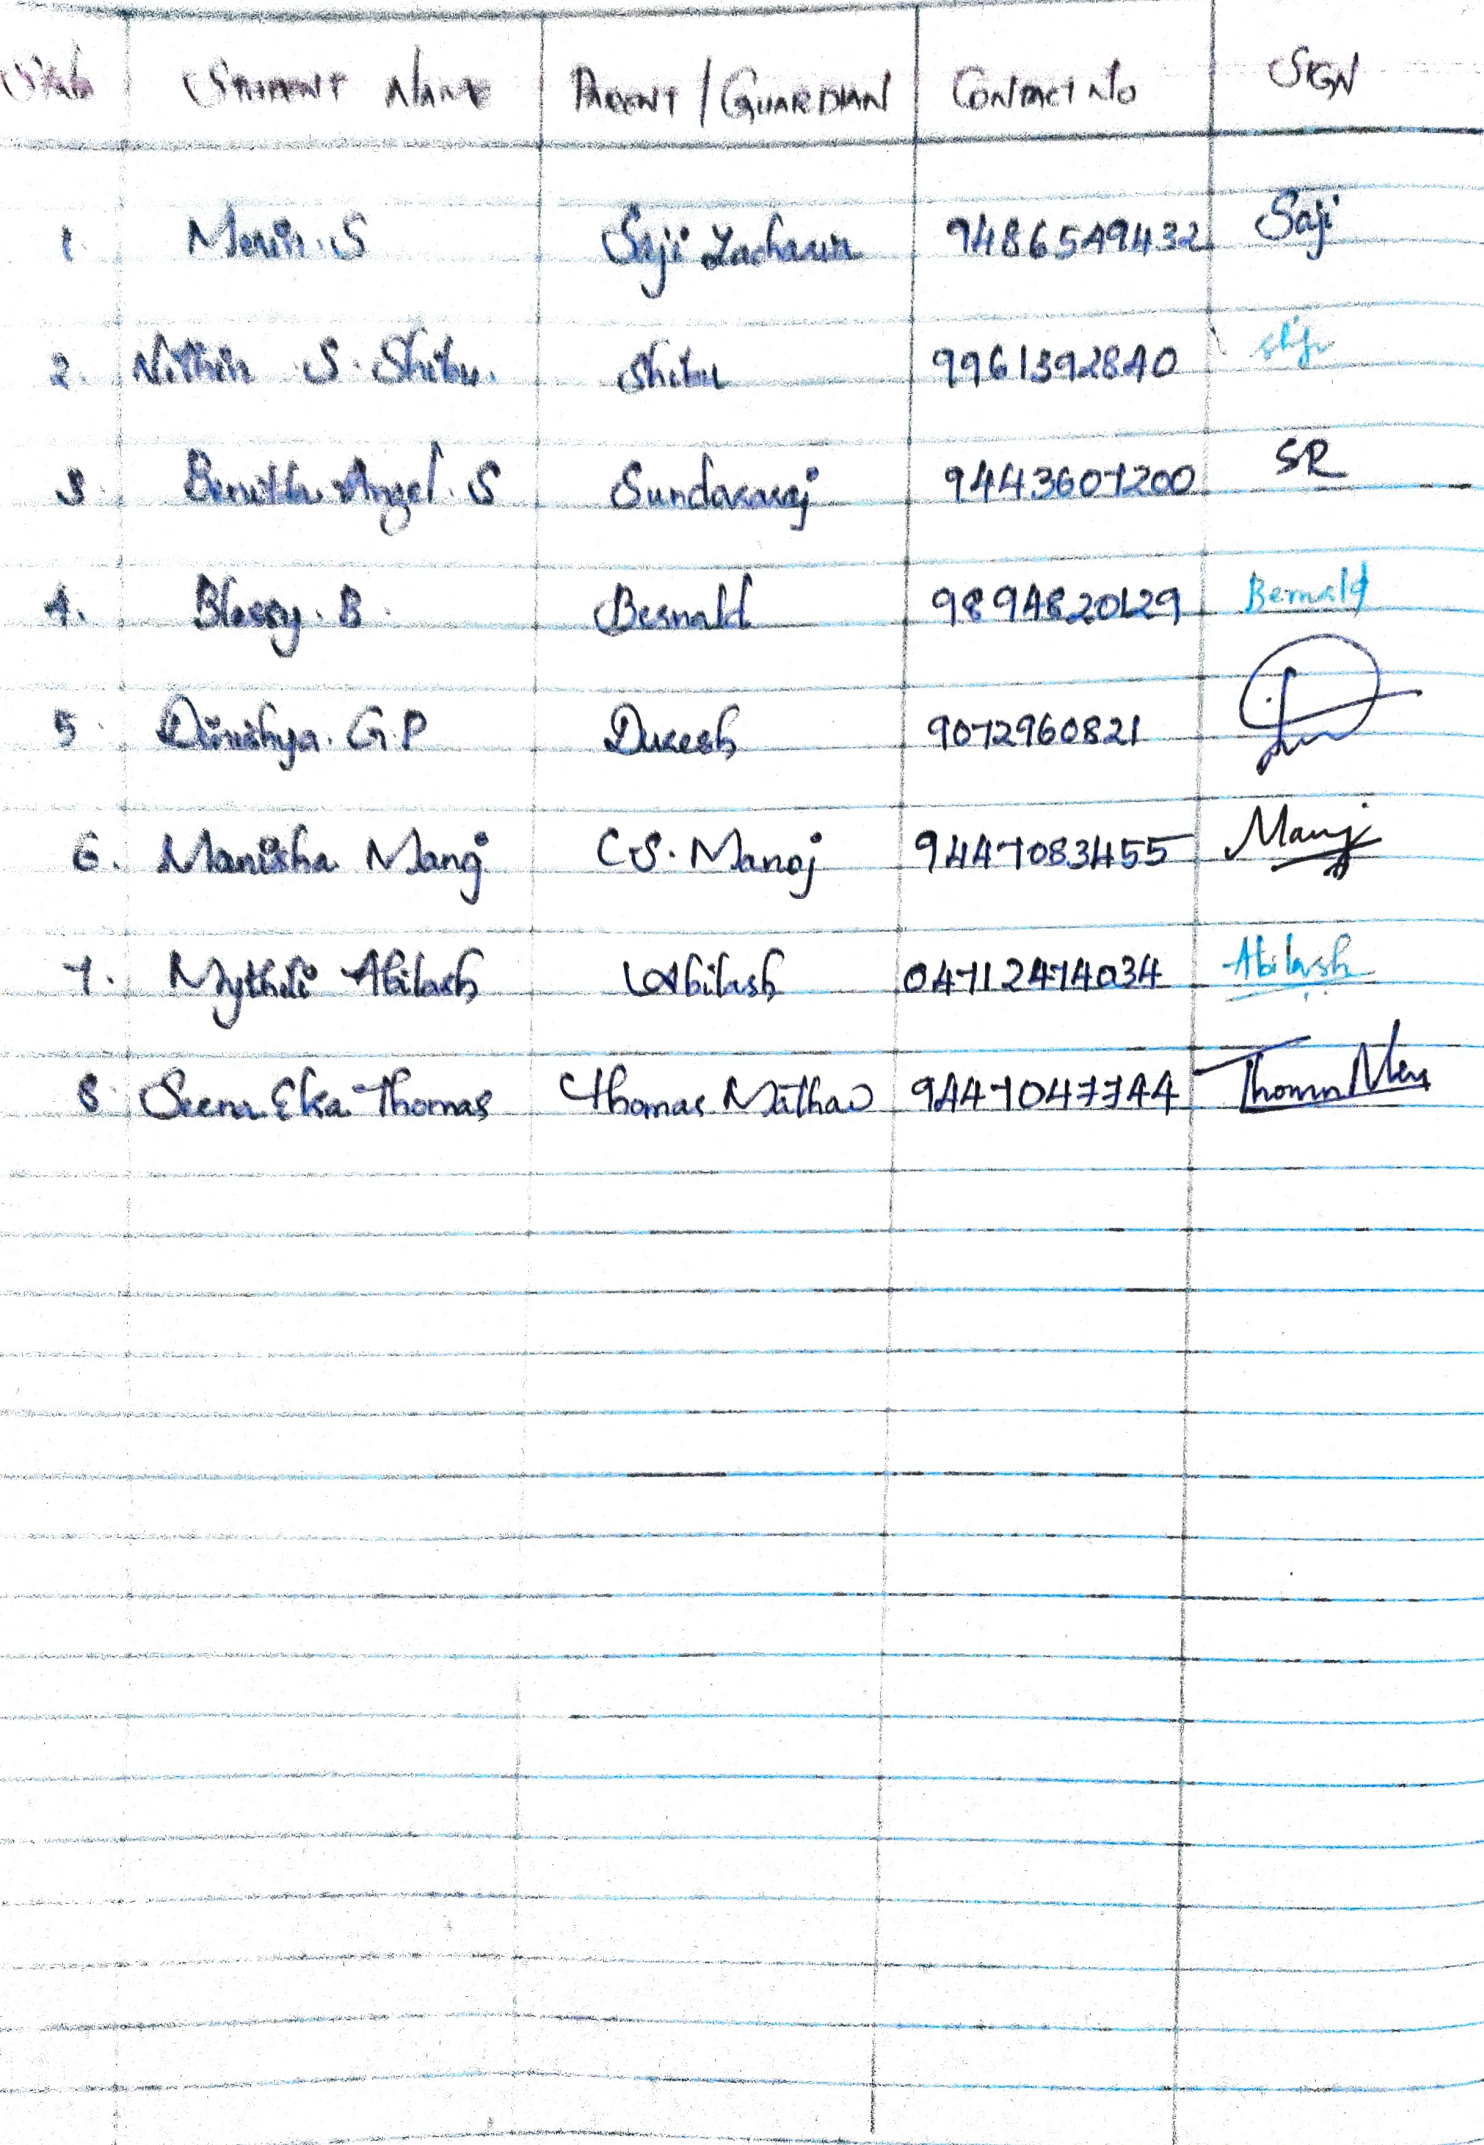 Sl.No STUDENT NAME PARENT / GUARDIAN CONTACT No SIGN
1. Merin. S Saji Zacharia 9486549432 Saji
2. Nithin S. Shibu. Shibu 9961392840
3. Benitta Angel. S Sundararaj 9443607200 SR
4. Blessy. B. Bernald 9894820129 Bernald
5. Dinishya. G.P Duresh 9072960821
6. Manisha Manoj C.S. Manoj 9447083455 Manoj
7. Mythili Abilash Abilash 04712474034 Abilash
8. Seena Elsa Thomas Thomas Mathew 9447047744 Thomas